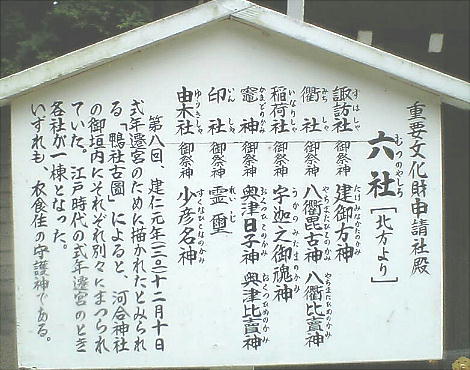 重要文化財申請社殿
六社［北方より］
むつのやしろ
諏訪社 御祭神 建御方神
すはしゃ たけみなかたのかみ
衢社 御祭神 八衢毘古神 八衢比賣神
みちしゃ やちまたひこのかみ やちまたひめのかみ
稲荷社 御祭神 宇迦之御魂神
いなりしゃ うかのみたまのかみ
竈神 御祭神 奥津日子神 奥津比賣神
かまどのかみ おくつひこのかみ おくつひめのかみ
印社 御祭神 霊璽
いんしゃ れいじ
由木社 御祭神 少彦名神
ゆうきしゃ すくなひこなのかみ
第八回、建仁元年（一二〇一）十二月十日
式年遷宮のために描かれたとみられ
る「鴨社古圖」によると、河合神社
の御垣内にそれぞれ別々にまつられ
ていた。江戸時代の式年遷宮のとき
各社が一棟となった。
いずれも、衣食住の守護神である。